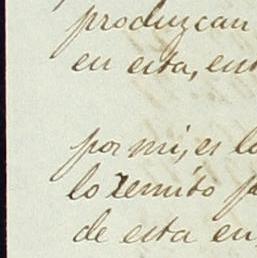 produzcan
en esta, en
por mi, es lo
lo remito p
de esta en